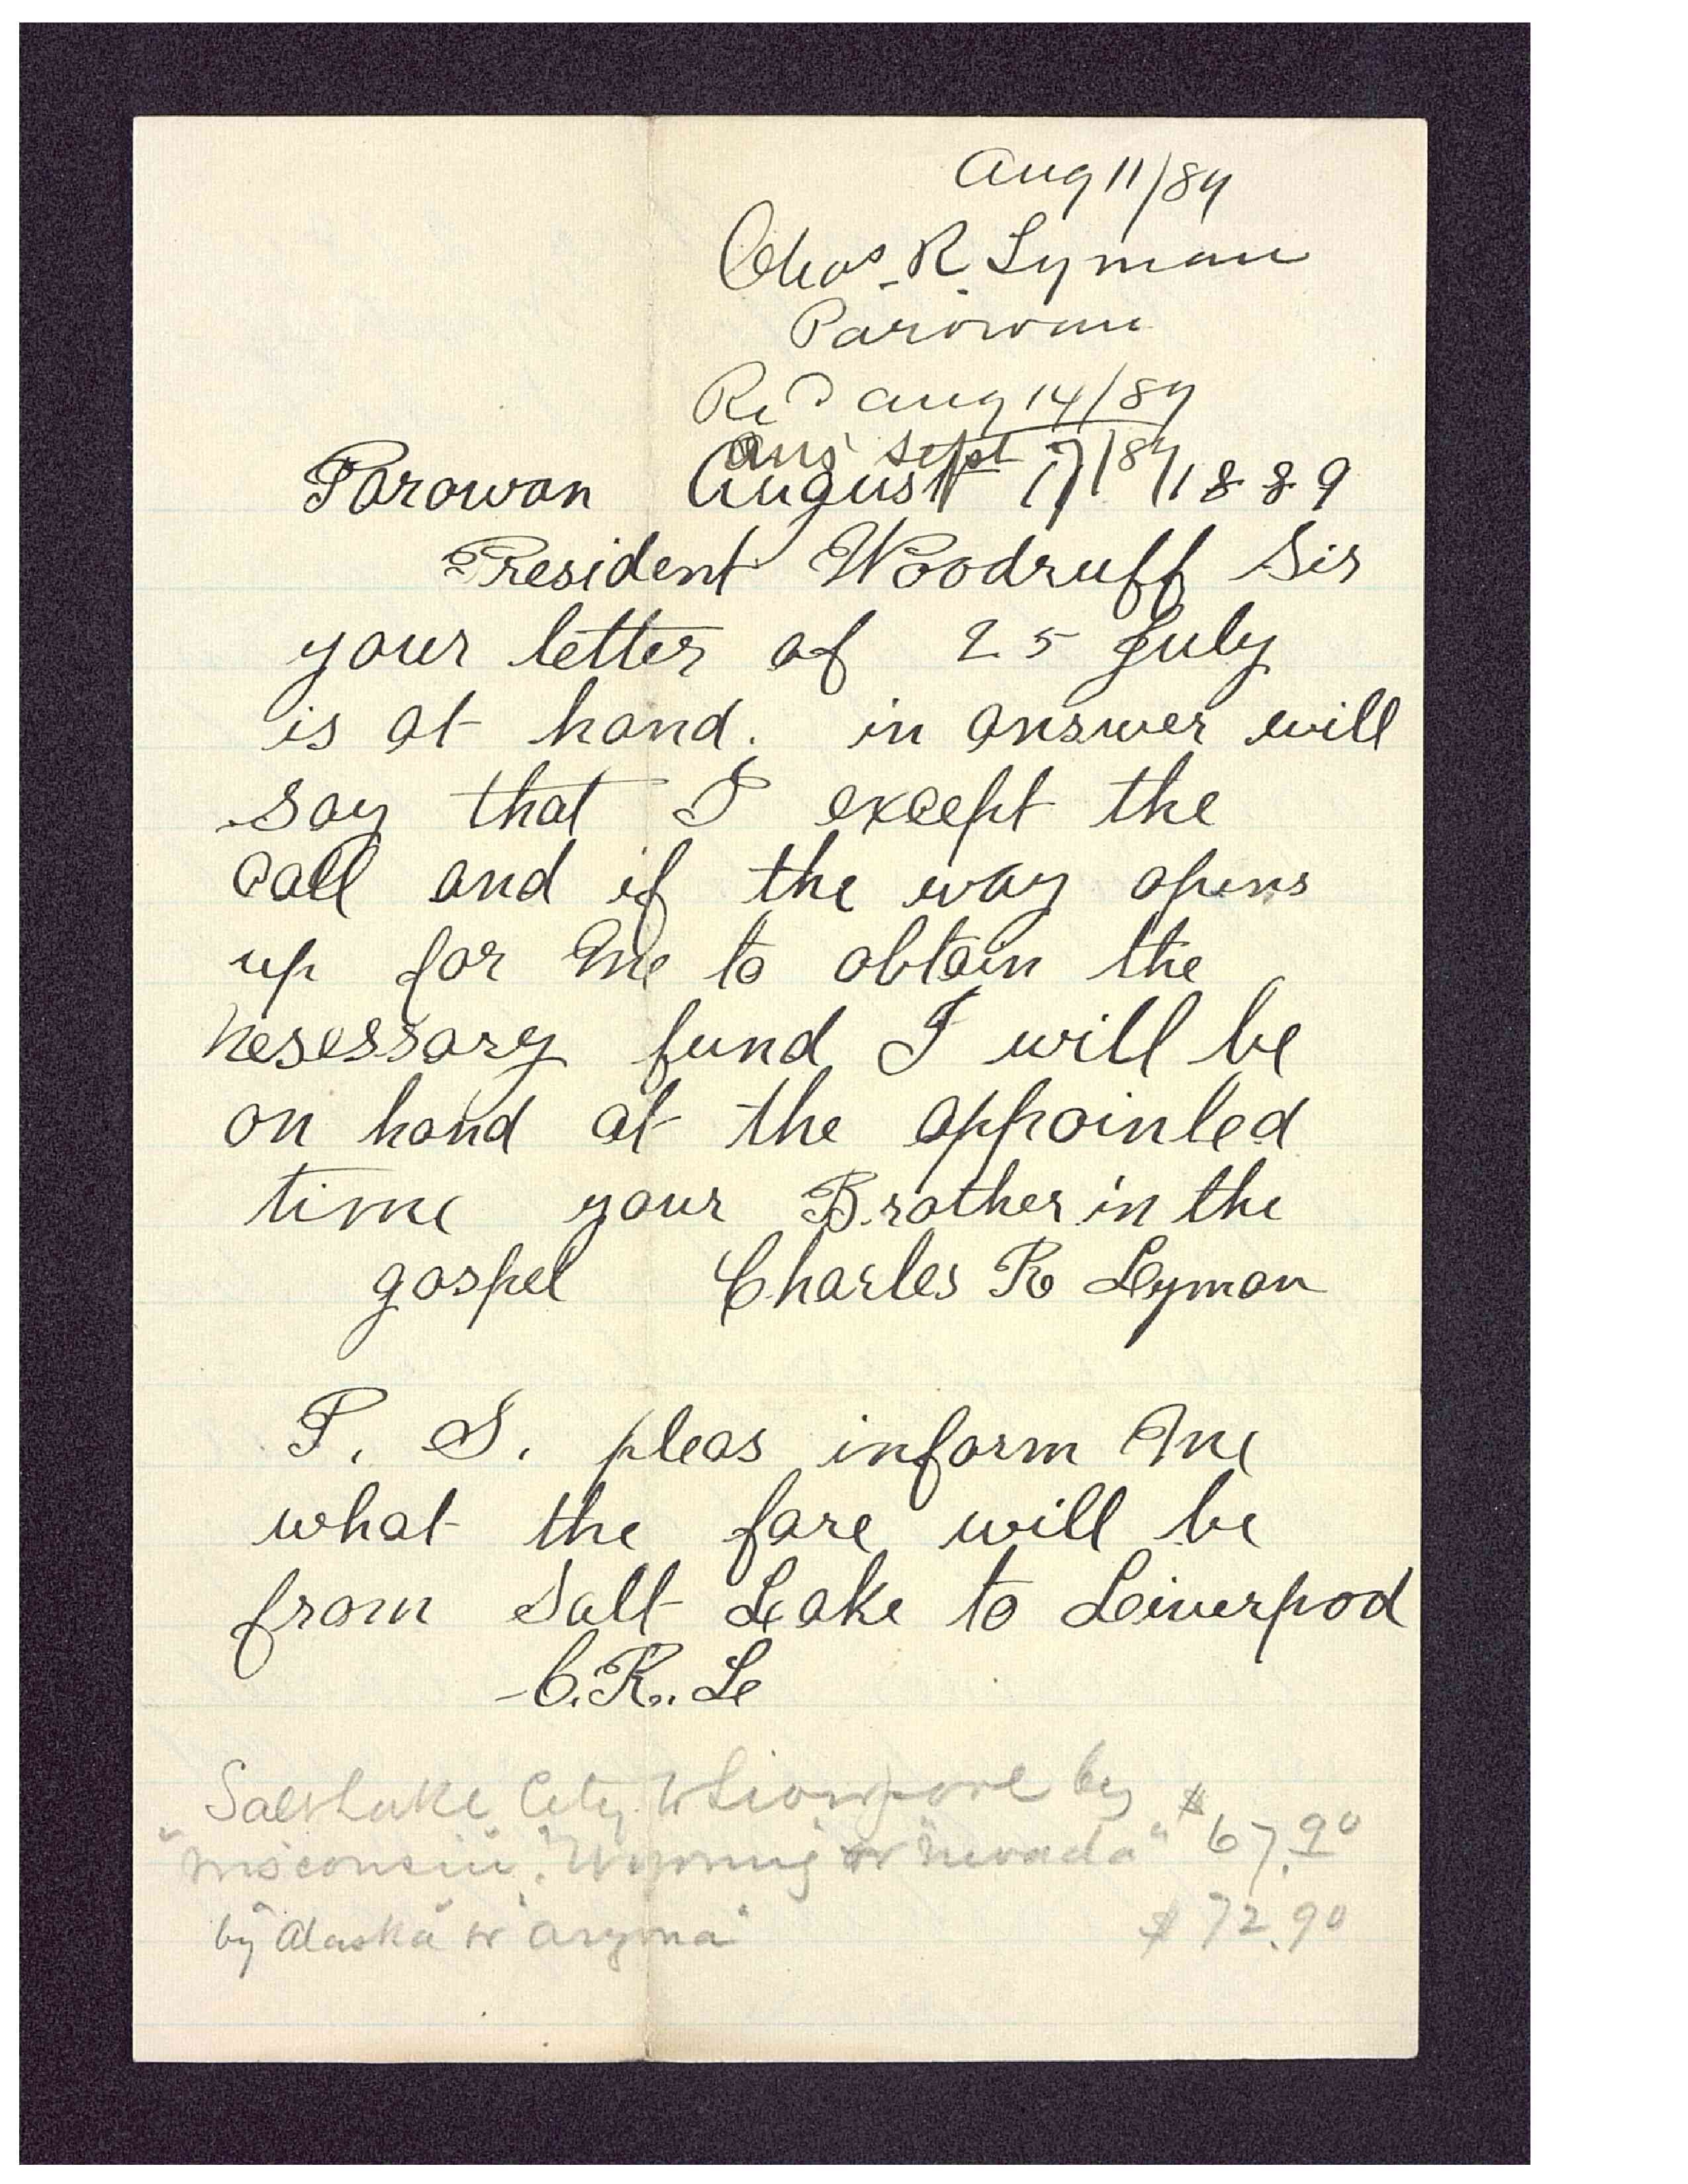 Aug 11/89
Chas. R. Lyman
Parowan
Rec'd Aug 14/89
ans Sept 7/89
Parowan August 11 1889
President Woodruff Sir
your letter of 25 July
is at hand. in answer will
say that I except the
call and if the way opens
up for me to obtain the
nesessary fund I will be
on hand at the appointed
time your Brother in the
gospel Charles R Lyman
P. S. pleas inform me
what the fare will be
from Salt Lake to Liverpool
C. R. L
Salt Lake City to Liverpool by
"Wisconsin" "Wyoming" or "Nevada" $67.90
by "Alaska" or "Aryona" $72.90